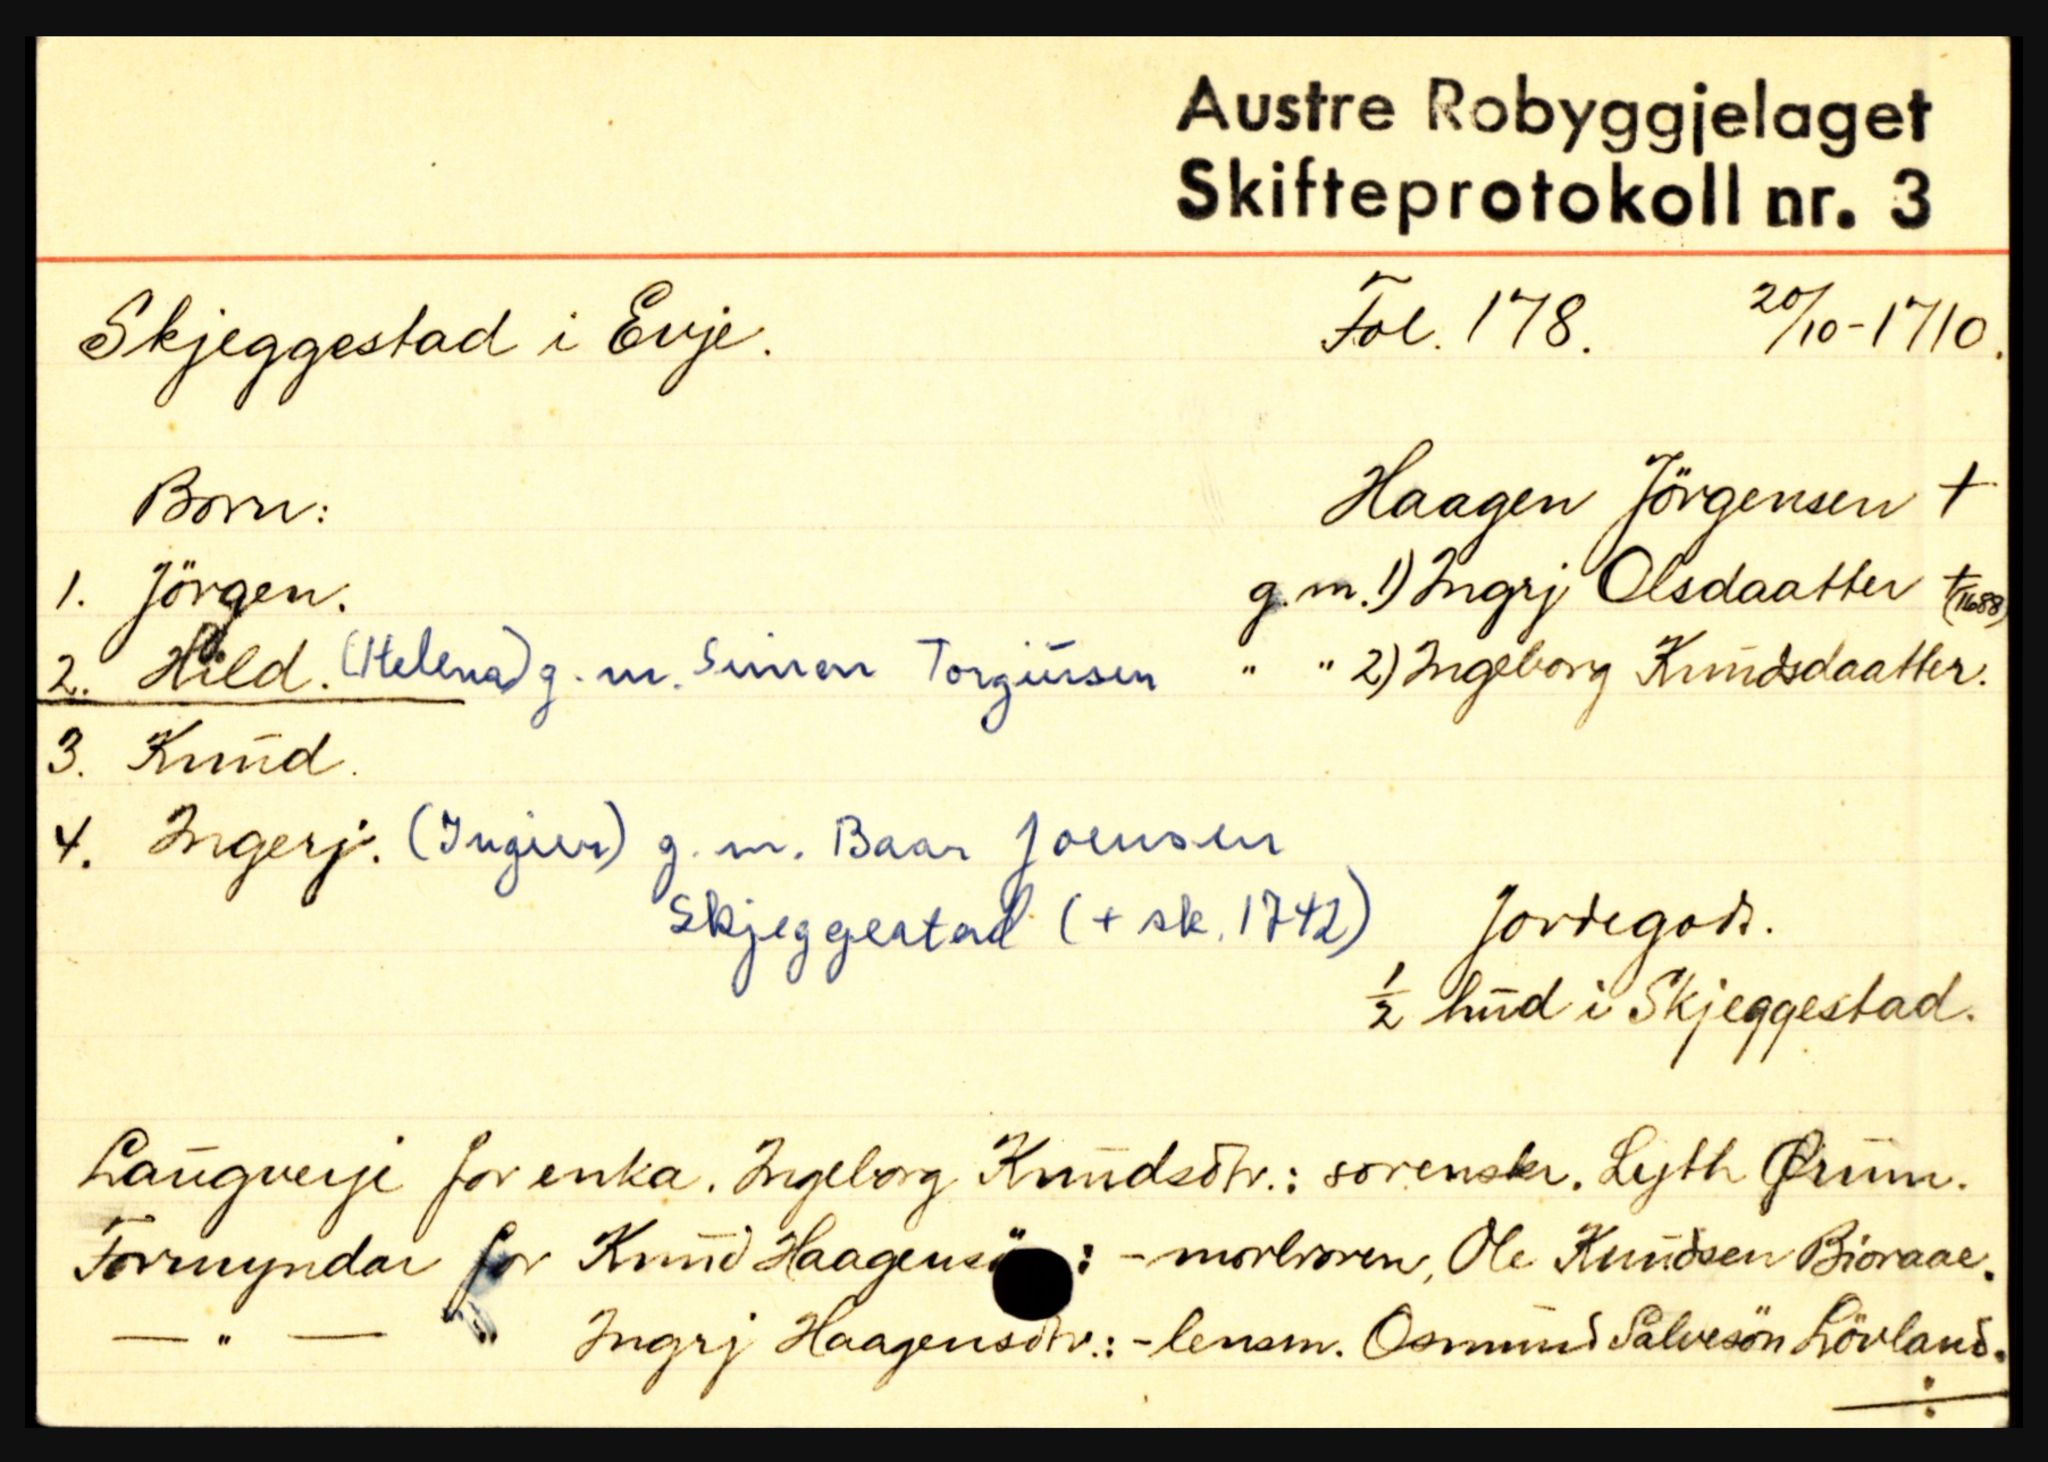 Austre Robyggjelaget
Skifteprotokoll nr. 3
Skjeggestad i Evje. Fol. 178. 20/10-1710.
Born: Haagen Jörgensen +
1. Jörgen. g.m. 1) Ingrj Olsdaatter + (1688)
2. Hild. (Helena) g.m. Simen Torgiusen " " 2) Ingeborg Knudsdaatter.
3. Knud.
4. Ingerj. (Ingier) g.m. Baar Joensen
Skjeggestad (+ sk. 1742) Jordegods.
1/2 hud i Skjeggestad.
Laugverje for enka. Ingeborg Knudsdtr.: sorenskr. Lyth Ørum.
Formyndar for Knud Haagensö : - morbroren, Ole Knudsen Bioraae.
— " — " Ingrj Haagensdtr.: - lensm. Osmund Salvesön Lövland.